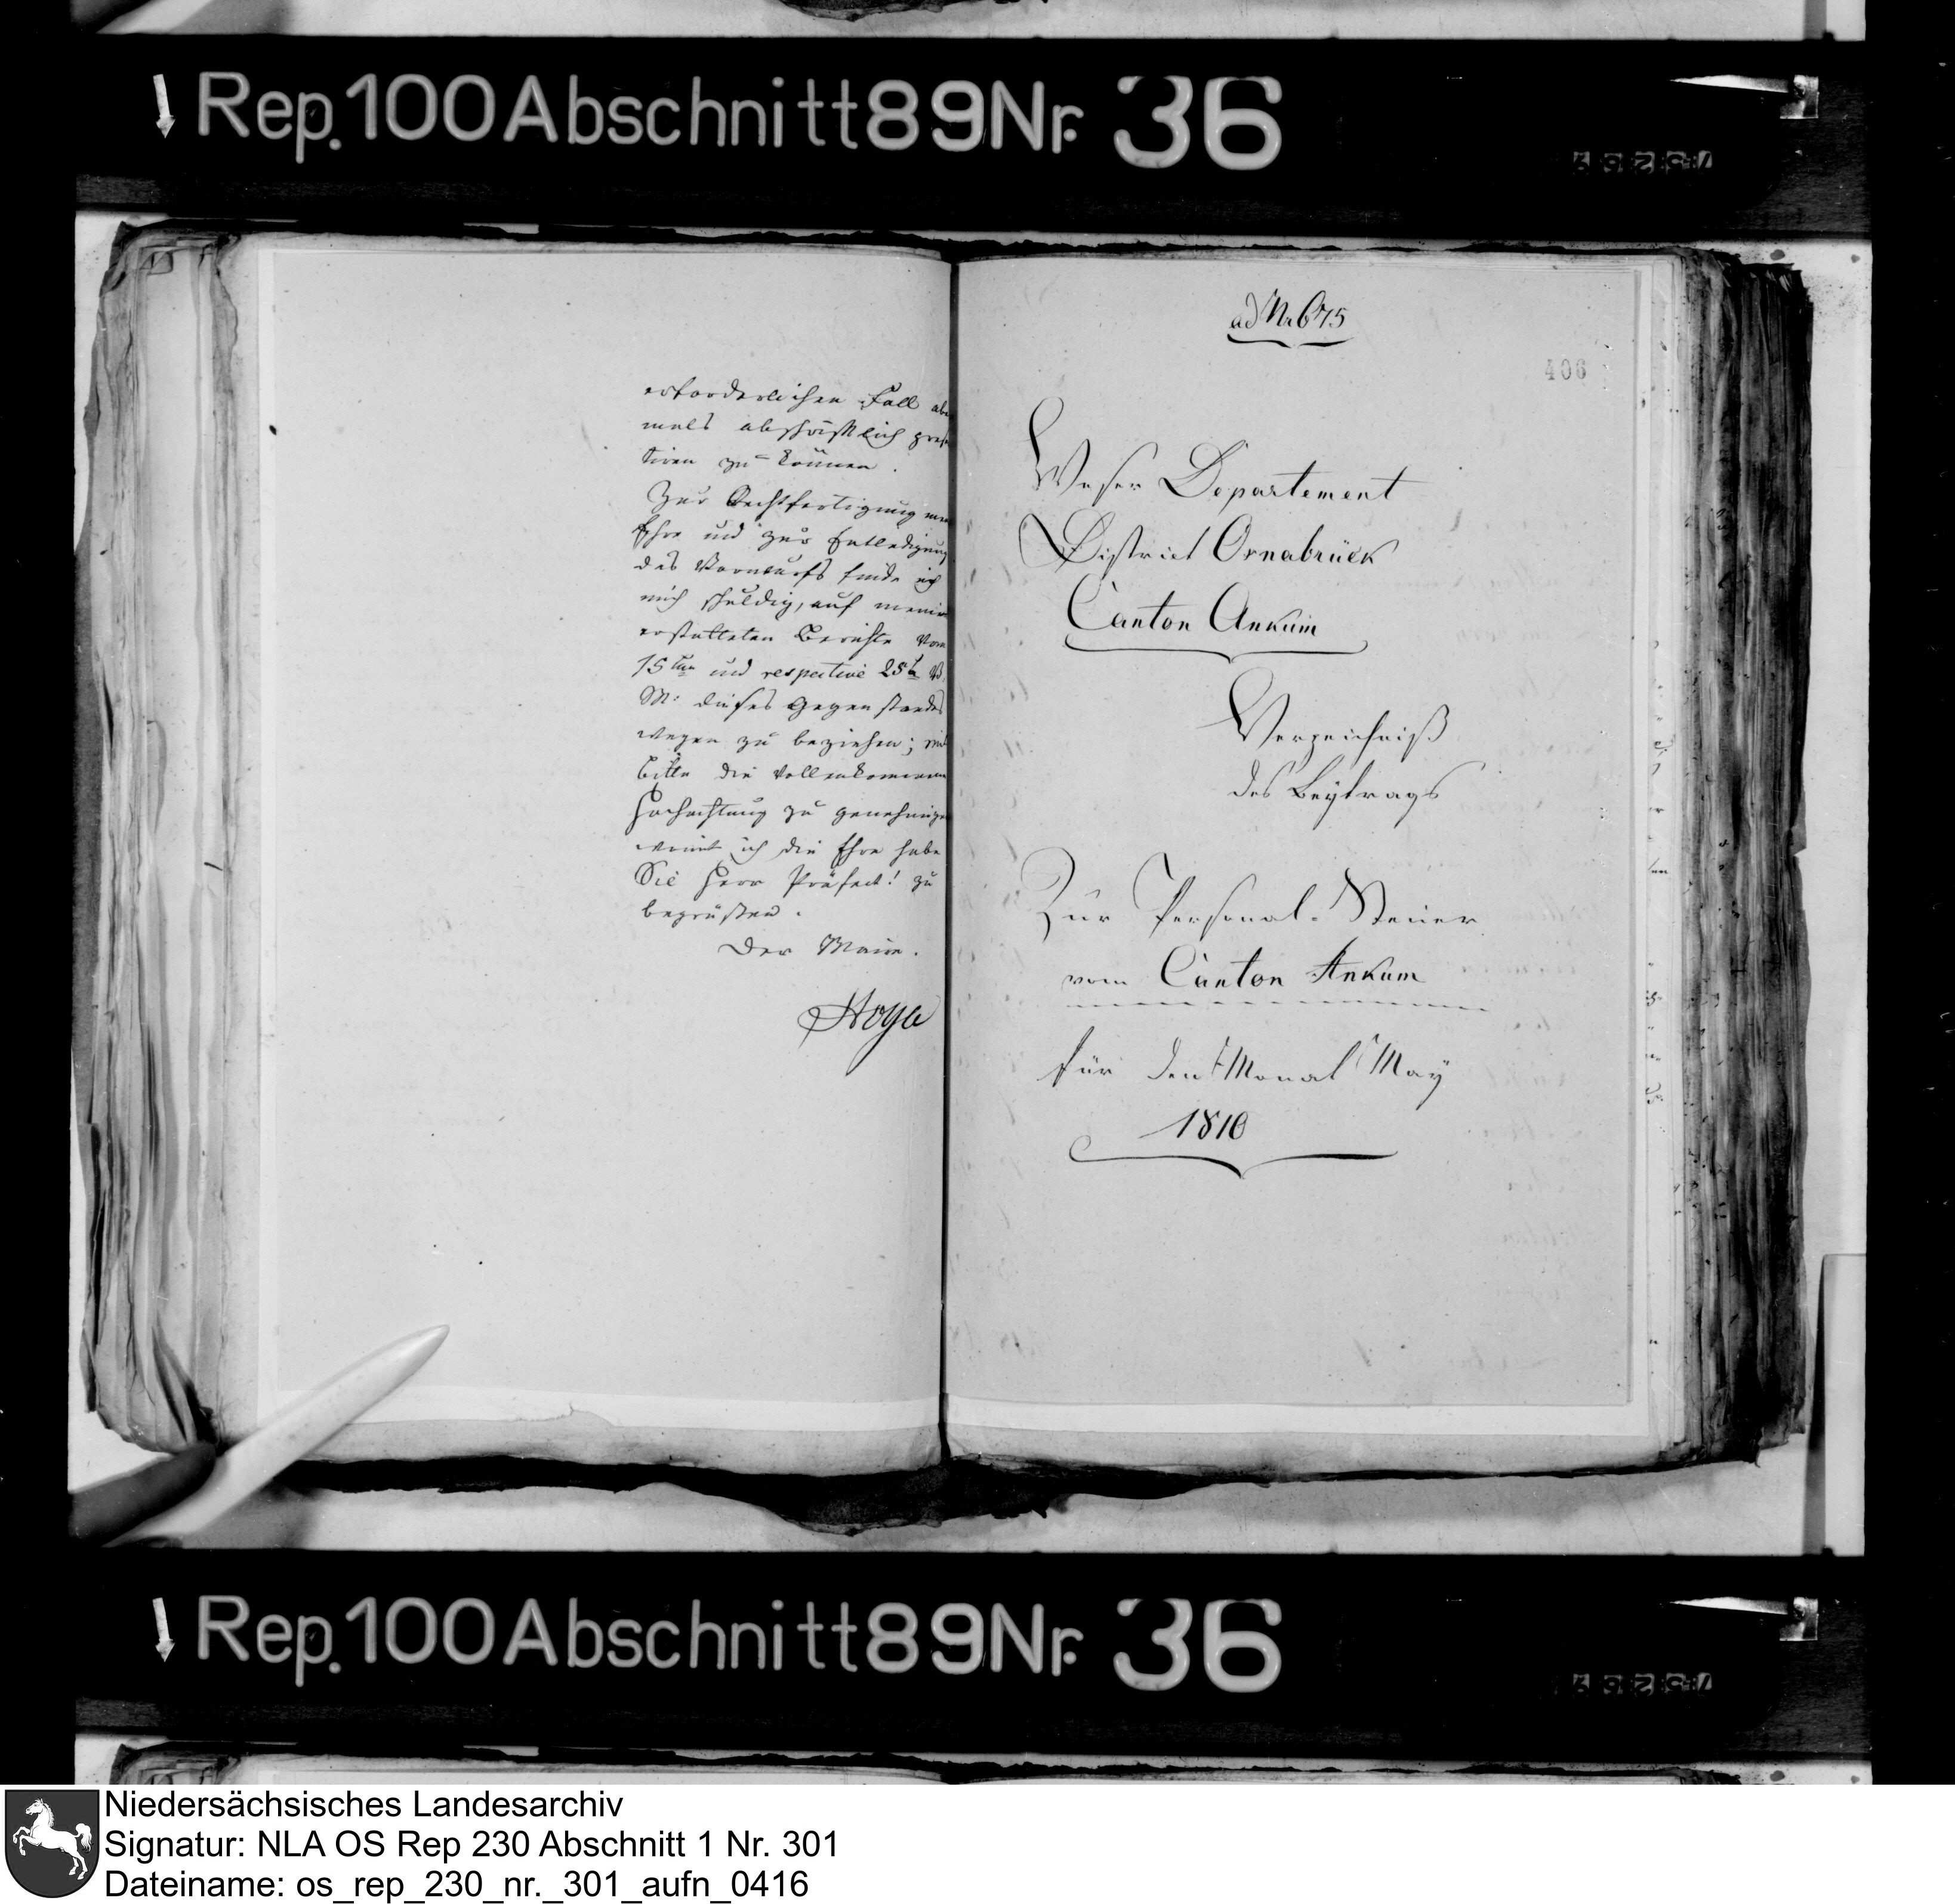 Rep. 100 Abschnitt 89 Nr. 36
erforderlichen Fall abe
mals abschriftlich præs
tiren zu können.
Zur Rechtfertigung mei
Ehre und zur Entledigung
des Vorwurfs finde ich
mich schuldig, auf meine
erstatteten Berichte vom
15ten und respective 25t v.
M: dieses Gegenstandes
wegen zu beziehen; und
bitte die vollenkommene
Hochachtung zu genehmigen
womit ich die Ehre habe
Sie Herr Präfect! zu
begrüßen.
Der Maire.
Hoya
ad Nr 675
406
Weser Departement
District Osnabrück
Canton Ankum
Verzeichniß
des Beytrags
Zur Personal-Steuer
vom Canton Ankum
für den Monat May
1810
Rep. 100 Abschnitt 89 Nr. 36
Niedersächsisches Landesarchiv
Signatur: NLA OS Rep 230 Abschnitt 1 Nr. 301
Dateiname: os_rep_230_nr._301_aufn_0416